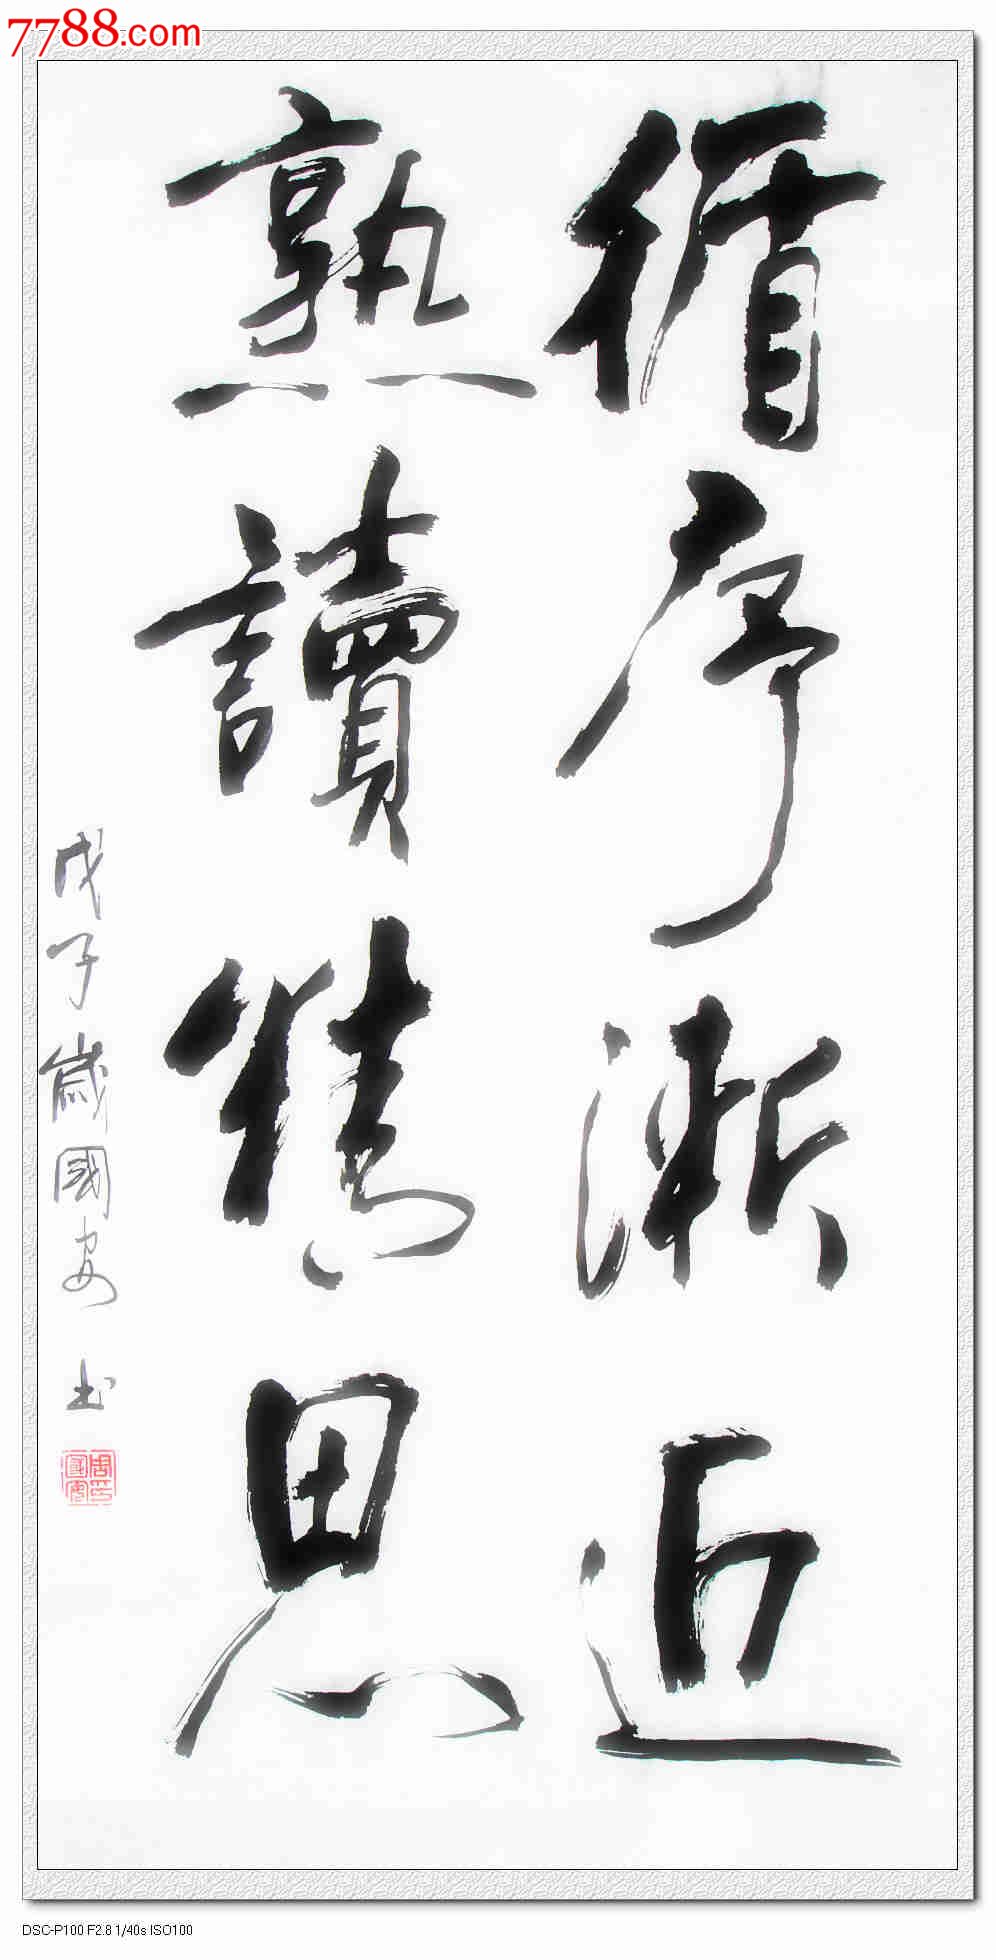 7788.com
循序漸近
熟讀精思
戊子歲國安书
DSC-P100 F2.8 1/40s ISO100